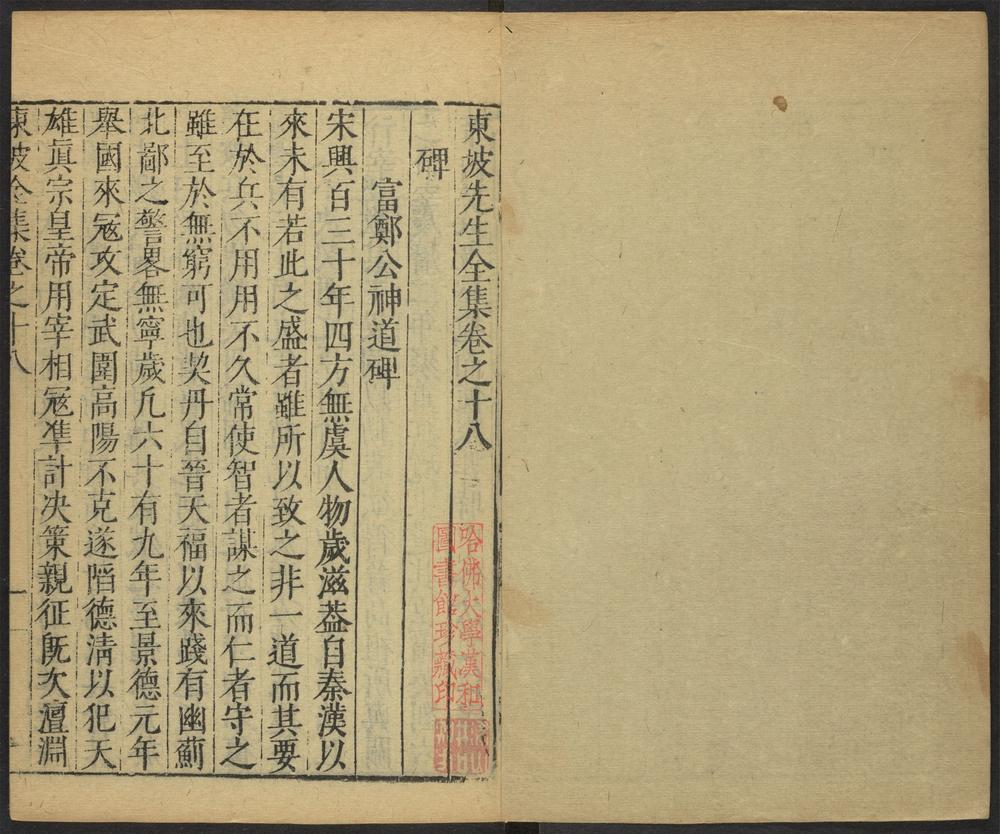 東坡先生全集卷之十八
碑
富鄭公神道碑
宋興百三十年四方無虞人物歲滋葢自秦漢以
來未有若此之盛者雖所以致之非一道而其要
在於兵不用用不久常使智者謀之而仁者守之
雖至於無窮可也契丹自晉天福以來踐有幽薊
北鄙之警畧無寧歲凡六十有九年至景德元年
舉國來冦攻定武圍高陽不克遂䧟德淸以犯天
雄眞宗皇帝用宰相冦凖計决策親征旣次澶淵
東坡全集卷之十八
一
哈佛大學漢和
圖書館珍藏印